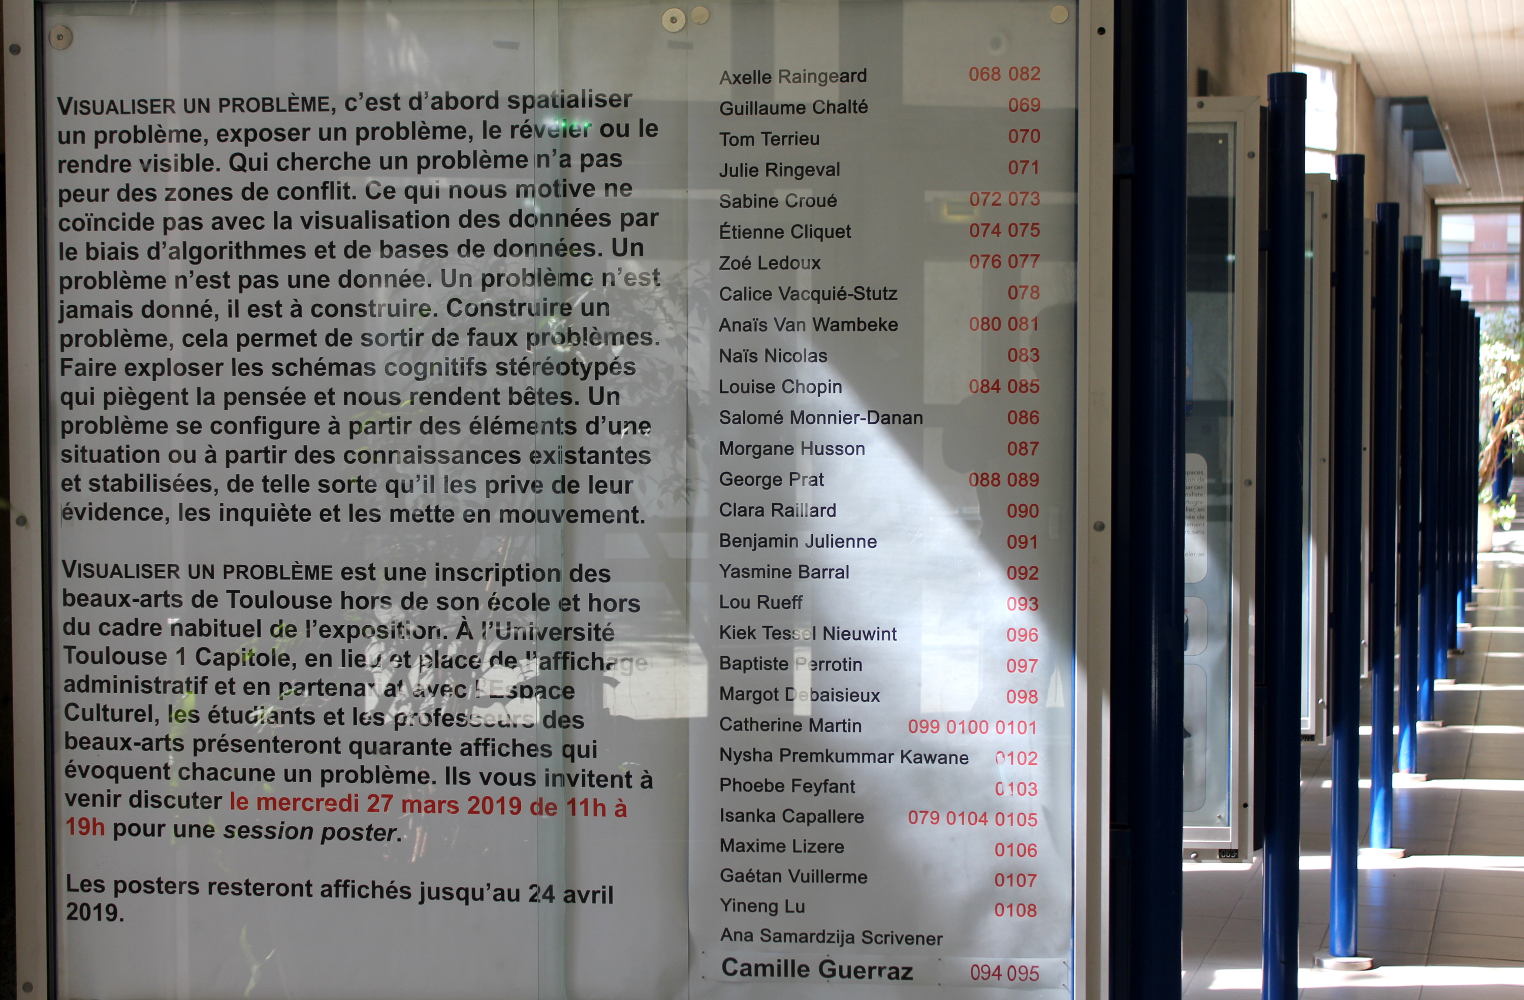 VISUALISER UN PROBLÈME, c’est d’abord spatialiser
un problème, exposer un problème, le révéler ou le
rendre visible. Qui cherche un problème n’a pas
peur des zones de conflit. Ce qui nous motive ne
coïncide pas avec la visualisation des données par
le biais d’algorithmes et de bases de données. Un
problème n’est pas une donnée. Un problème n’est
jamais donné, il est à construire. Construire un
problème, cela permet de sortir de faux problèmes.
Faire exploser les schémas cognitifs stéréotypés
qui piègent la pensée et nous rendent bêtes. Un
problème se configure à partir des éléments d’une
situation ou à partir des connaissances existantes
et stabilisées, de telle sorte qu’il les prive de leur
évidence, les inquiète et les mette en mouvement.
VISUALISER UN PROBLÈME est une inscription des
beaux-arts de Toulouse hors de son école et hors
du cadre habituel de l’exposition. À l’Université
Toulouse 1 Capitole, en lieu et place de l’affichage
administratif et en partenariat avec l’Espace
Culturel, les étudiants et les professeurs des
beaux-arts présenteront quarante affiches qui
évoquent chacune un problème. Ils vous invitent à
venir discuter le mercredi 27 mars 2019 de 11h à
19h pour une session poster.
Les posters resteront affichés jusqu’au 24 avril
2019.
Axelle Raingeard 068 082
Guillaume Chalté 069
Tom Terrieu 070
Julie Ringeval 071
Sabine Croué 072 073
Étienne Cliquet 074 075
Zoé Ledoux 076 077
Calice Vacquié-Stutz 078
Anaïs Van Wambeke 080 081
Naïs Nicolas 083
Louise Chopin 084 085
Salomé Monnier-Danan 086
Morgane Husson 087
George Prat 088 089
Clara Raillard 090
Benjamin Julienne 091
Yasmine Barral 092
Lou Rueff 093
Kiek Tessel Nieuwint 096
Baptiste Perrotin 097
Margot Debaisieux 098
Catherine Martin 099 0100 0101
Nysha Premkummar Kawane 0102
Phoebe Feyfant 0103
Isanka Capallere 079 0104 0105
Maxime Lizere 0106
Gaétan Vuillerme 0107
Yineng Lu 0108
Ana Samardzija Scrivener
Camille Guerraz 094 095